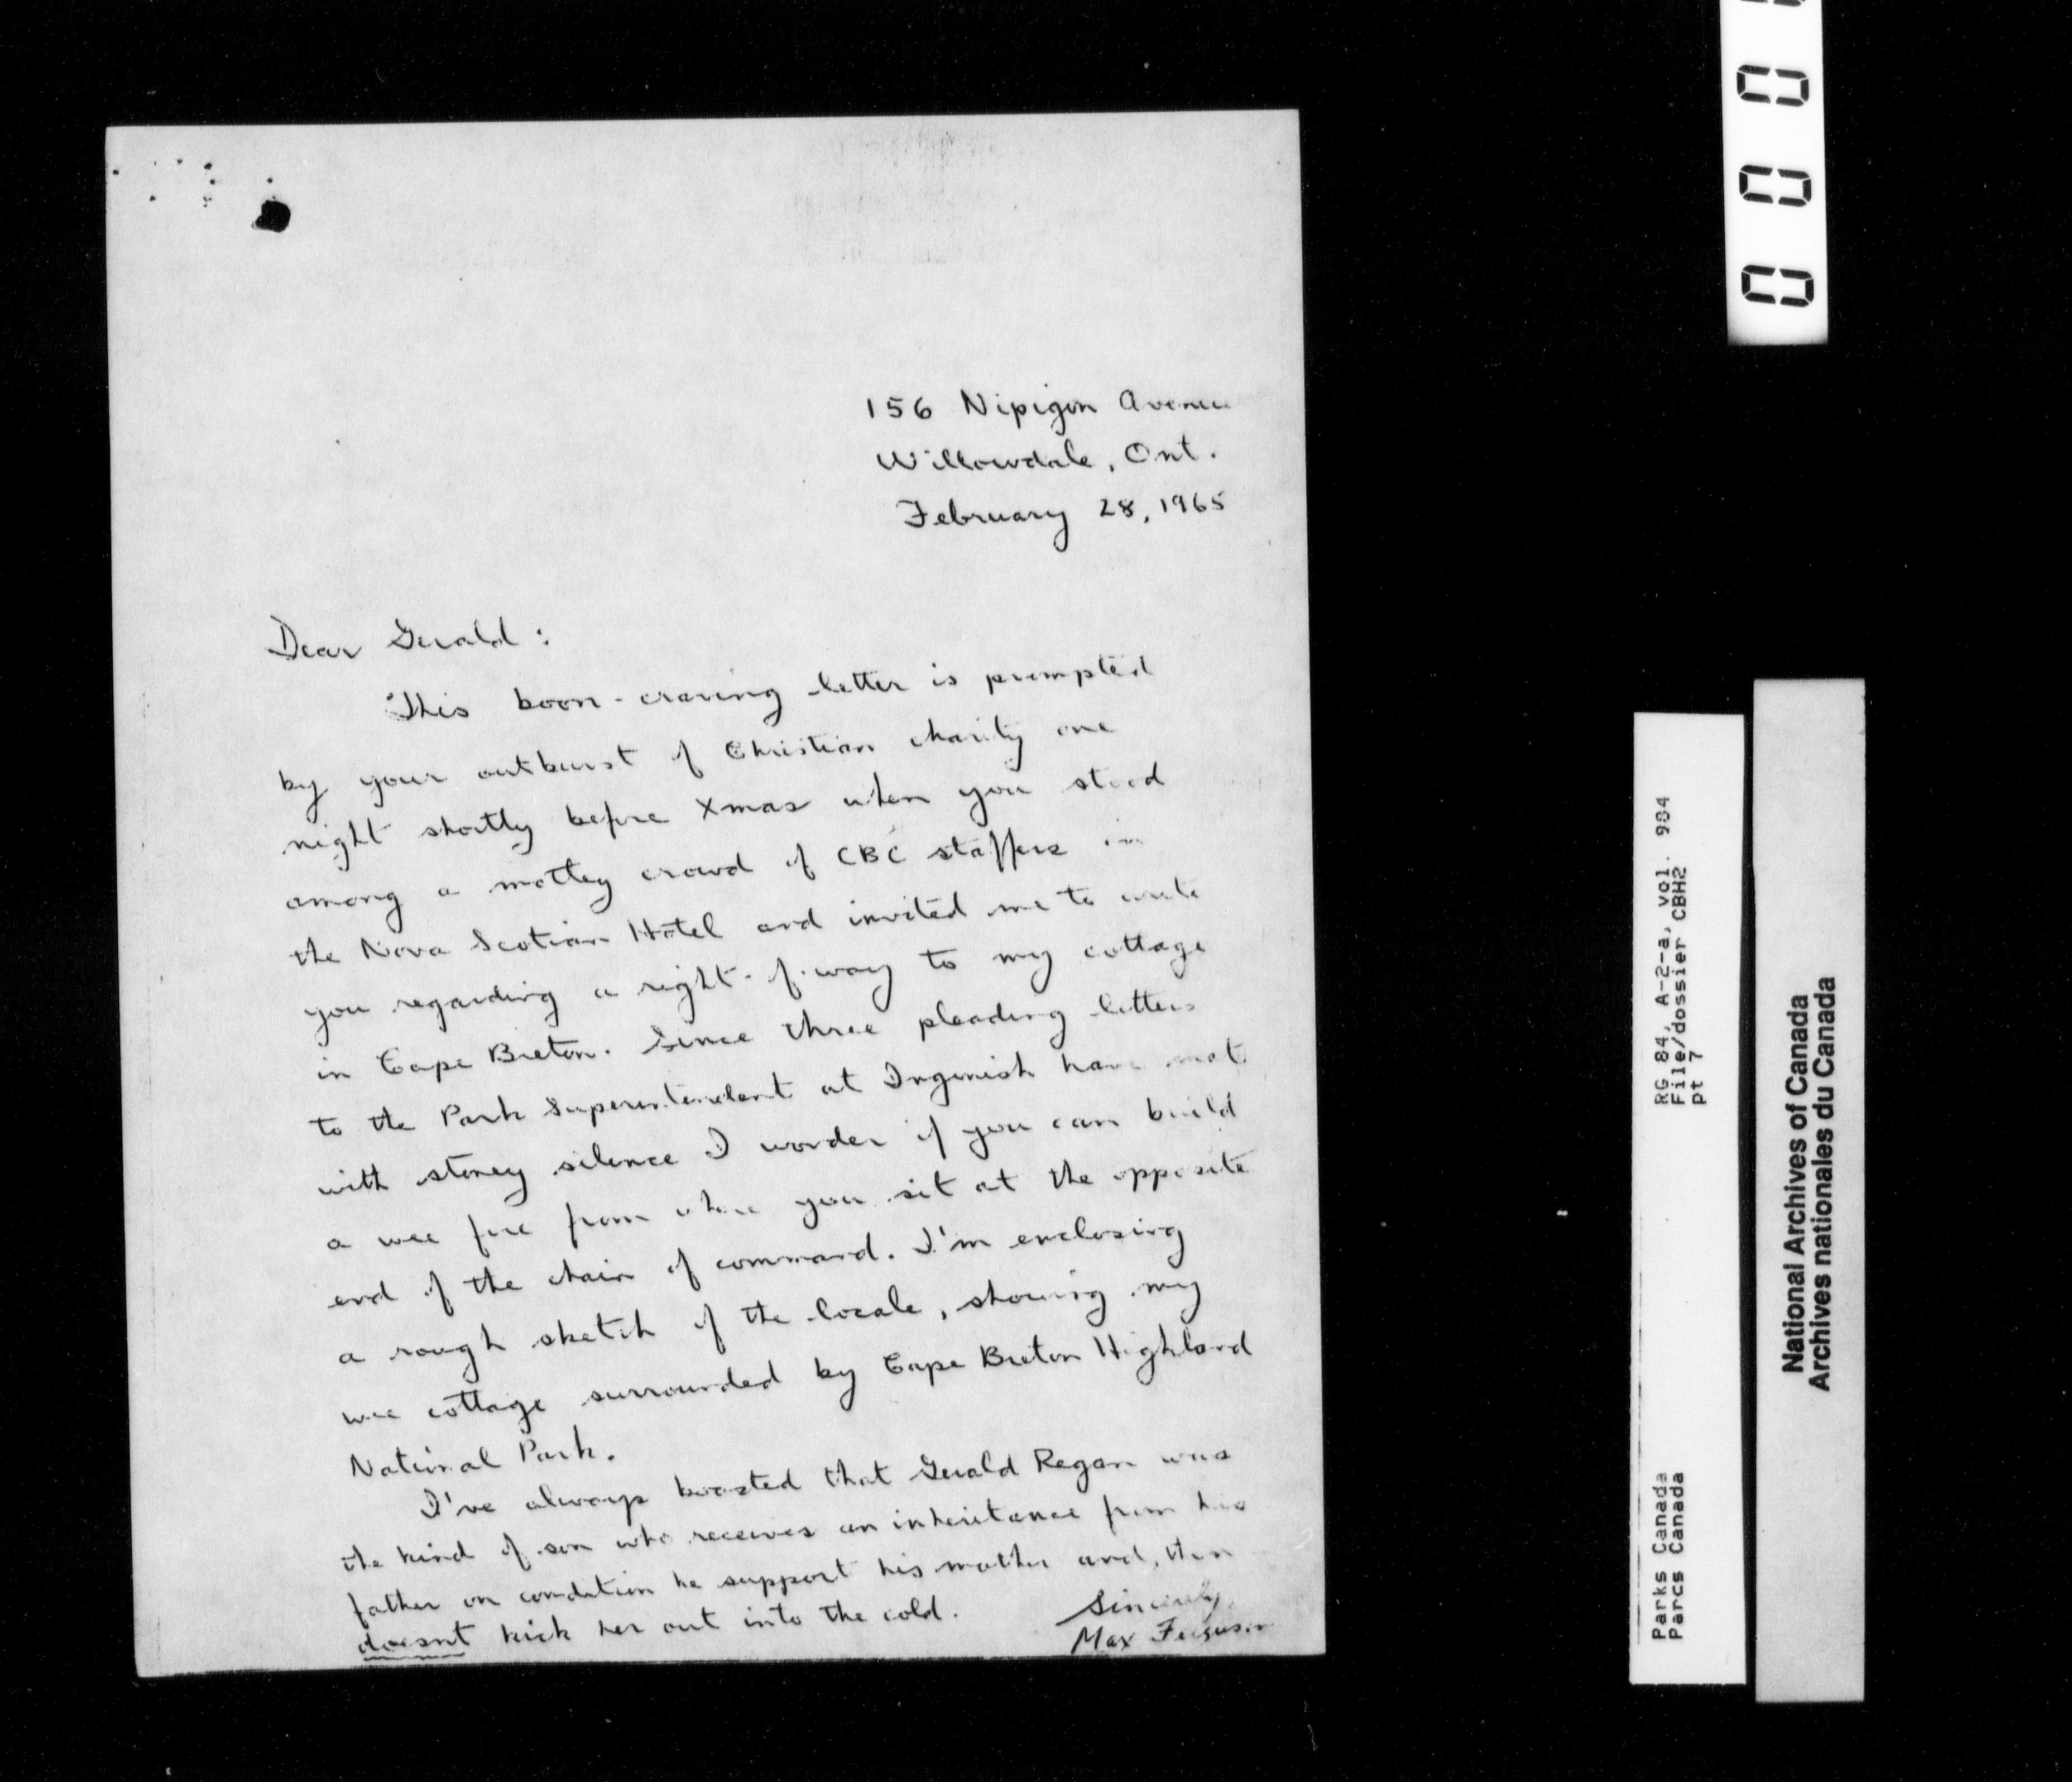 156 Nipigon Avenue
Willowdale, Ont.
February 28, 1965
Dear Gerald:
This boon-craving letter is prompted
by your outburst of Christian charity one
night shortly before Xmas when you stood
among a motley crowd of CBC staffers in
the Nova Scotian Hotel and invited me to write
you regarding a right-of-way to my cottage
in Cape Breton. Since three pleading letters
to the Park Superintendent at Ingonish have met
with stoney silence I wonder if you can build
a wee fire from where you sit at the opposite
end of the chain of command. I'm enclosing
a rough sketch of the locale, showing my
wee cottage surrounded by Cape Breton Highland
National Park.
I've always boasted that Gerald Regan was
the kind of son who receives an inheritance from his
father on condition he support his mother and, then
doesnt kick her out into the cold.
Sincerely,
Max Ferguson
0 0 0
RG 84, A-2-a, vol. 984
File/dossier CBH2
pt 7
Parks Canada
Parcs Canada
National Archives of Canada
Archives nationales du Canada